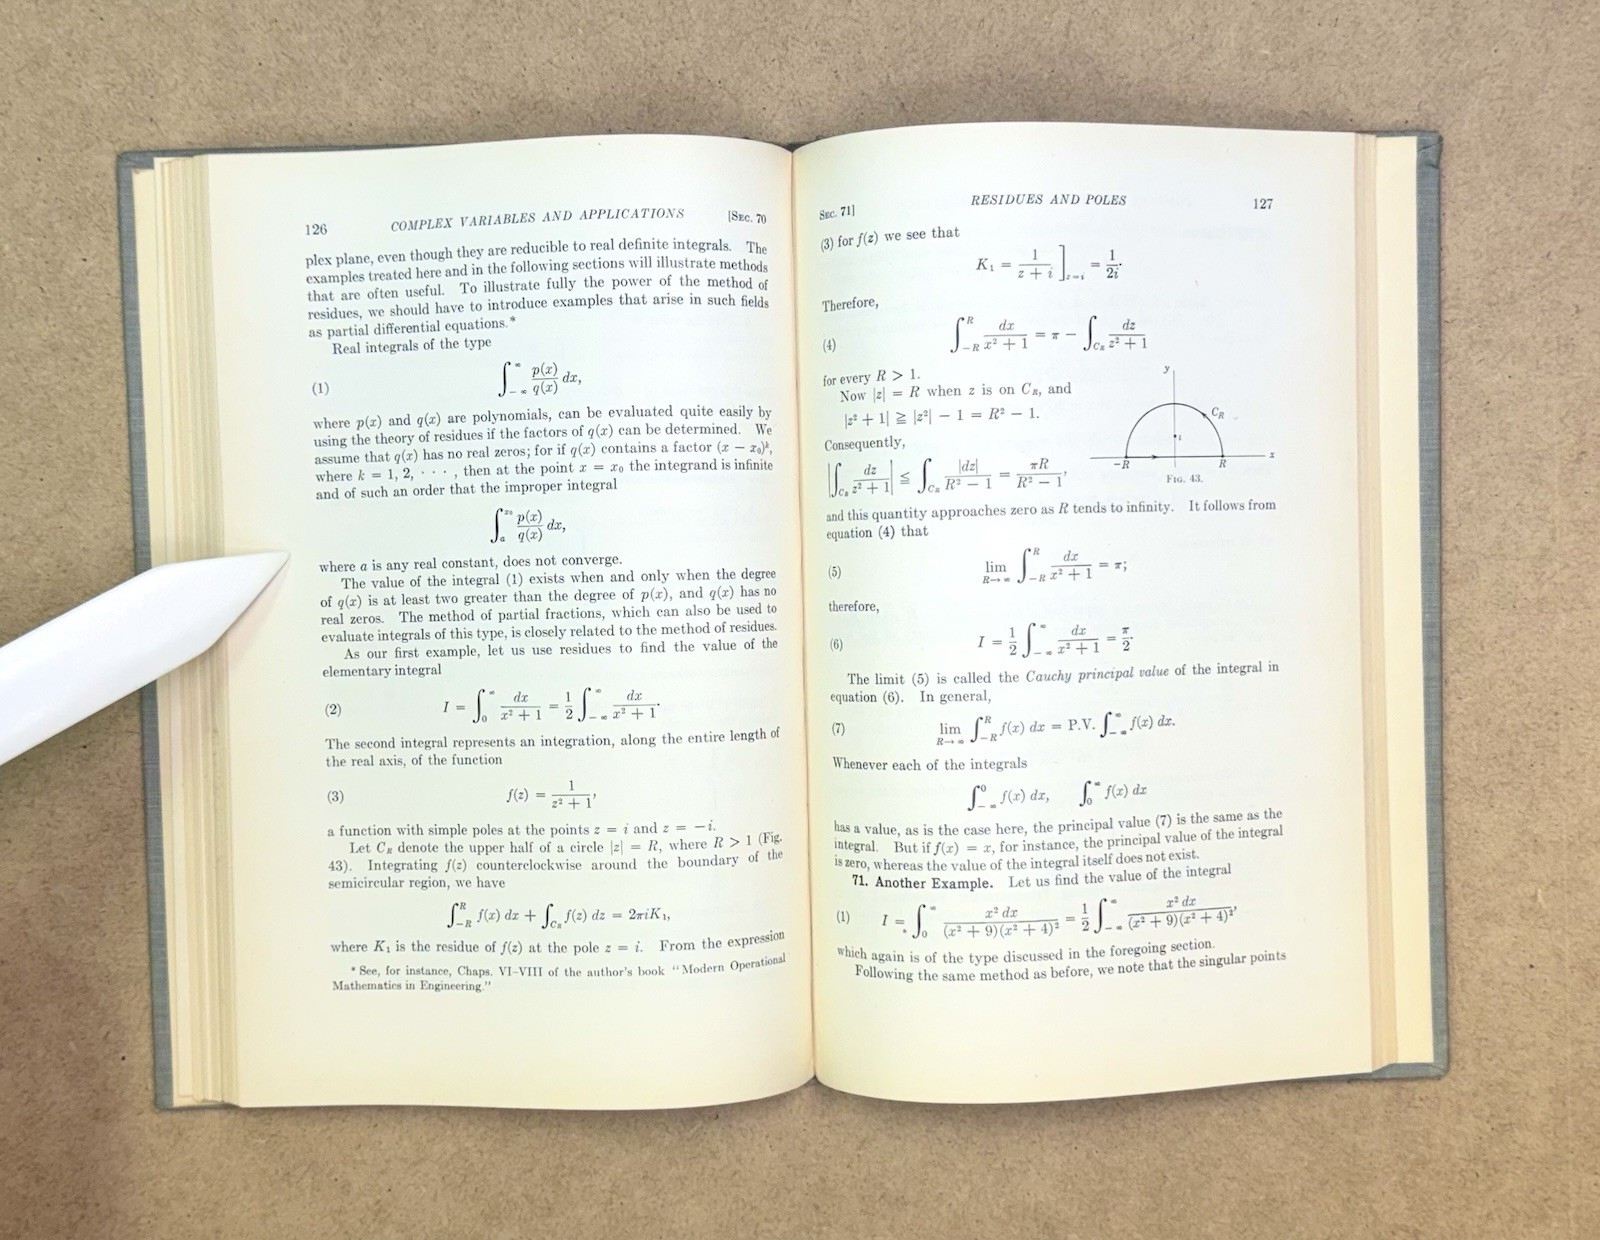 126 COMPLEX VARIABLES AND APPLICATIONS [SEC. 70
plex plane, even though they are reducible to real definite integrals. The
examples treated here and in the following sections will illustrate methods
that are often useful. To illustrate fully the power of the method of
residues, we should have to introduce examples that arise in such fields
as partial differential equations.*
Real integrals of the type
(1) ∫_{-∞}^{∞} p(x)/q(x) dx,
where p(x) and q(x) are polynomials, can be evaluated quite easily by
using the theory of residues if the factors of q(x) can be determined. We
assume that q(x) has no real zeros; for if q(x) contains a factor (x − x₀)ᵏ,
where k = 1, 2, · · · , then at the point x = x₀ the integrand is infinite
and of such an order that the improper integral
∫_a^{x₀} p(x)/q(x) dx,
where a is any real constant, does not converge.
The value of the integral (1) exists when and only when the degree
of q(x) is at least two greater than the degree of p(x), and q(x) has no
real zeros. The method of partial fractions, which can also be used to
evaluate integrals of this type, is closely related to the method of residues.
As our first example, let us use residues to find the value of the
elementary integral
(2) I = ∫_0^∞ dx/(x² + 1) = 1/2 ∫_{-∞}^{∞} dx/(x² + 1).
The second integral represents an integration, along the entire length of
the real axis, of the function
(3) f(z) = 1/(z² + 1),
a function with simple poles at the points z = i and z = −i.
Let C_R denote the upper half of a circle |z| = R, where R > 1 (Fig.
43). Integrating f(z) counterclockwise around the boundary of the
semicircular region, we have
∫_{-R}^{R} f(x) dx + ∫_{C_R} f(z) dz = 2πiK₁,
where K₁ is the residue of f(z) at the pole z = i. From the expression
* See, for instance, Chaps. VI–VIII of the author's book "Modern Operational
Mathematics in Engineering."
SEC. 71] RESIDUES AND POLES 127
(3) for f(z) we see that
K₁ = 1/(z + i) ]_{z=i} = 1/2i.
Therefore,
(4) ∫_{-R}^{R} dx/(x² + 1) = π − ∫_{C_R} dz/(z² + 1)
for every R > 1.
Now |z| = R when z is on C_R, and
|z² + 1| ≧ |z²| − 1 = R² − 1.
Consequently,
|∫_{C_R} dz/(z² + 1)| ≦ ∫_{C_R} |dz|/(R² − 1) = πR/(R² − 1),
y
C_R
i
−R R x
FIG. 43.
and this quantity approaches zero as R tends to infinity. It follows from
equation (4) that
(5) lim_{R→∞} ∫_{-R}^{R} dx/(x² + 1) = π;
therefore,
(6) I = 1/2 ∫_{-∞}^{∞} dx/(x² + 1) = π/2.
The limit (5) is called the Cauchy principal value of the integral in
equation (6). In general,
(7) lim_{R→∞} ∫_{-R}^{R} f(x) dx = P.V. ∫_{-∞}^{∞} f(x) dx.
Whenever each of the integrals
∫_{-∞}^{0} f(x) dx, ∫_0^∞ f(x) dx
has a value, as is the case here, the principal value (7) is the same as the
integral. But if f(x) = x, for instance, the principal value of the integral
is zero, whereas the value of the integral itself does not exist.
71. Another Example. Let us find the value of the integral
(1) I = ∫_0^∞ x² dx/((x² + 9)(x² + 4)²) = 1/2 ∫_{-∞}^{∞} x² dx/((x² + 9)(x² + 4)²),
which again is of the type discussed in the foregoing section.
Following the same method as before, we note that the singular points